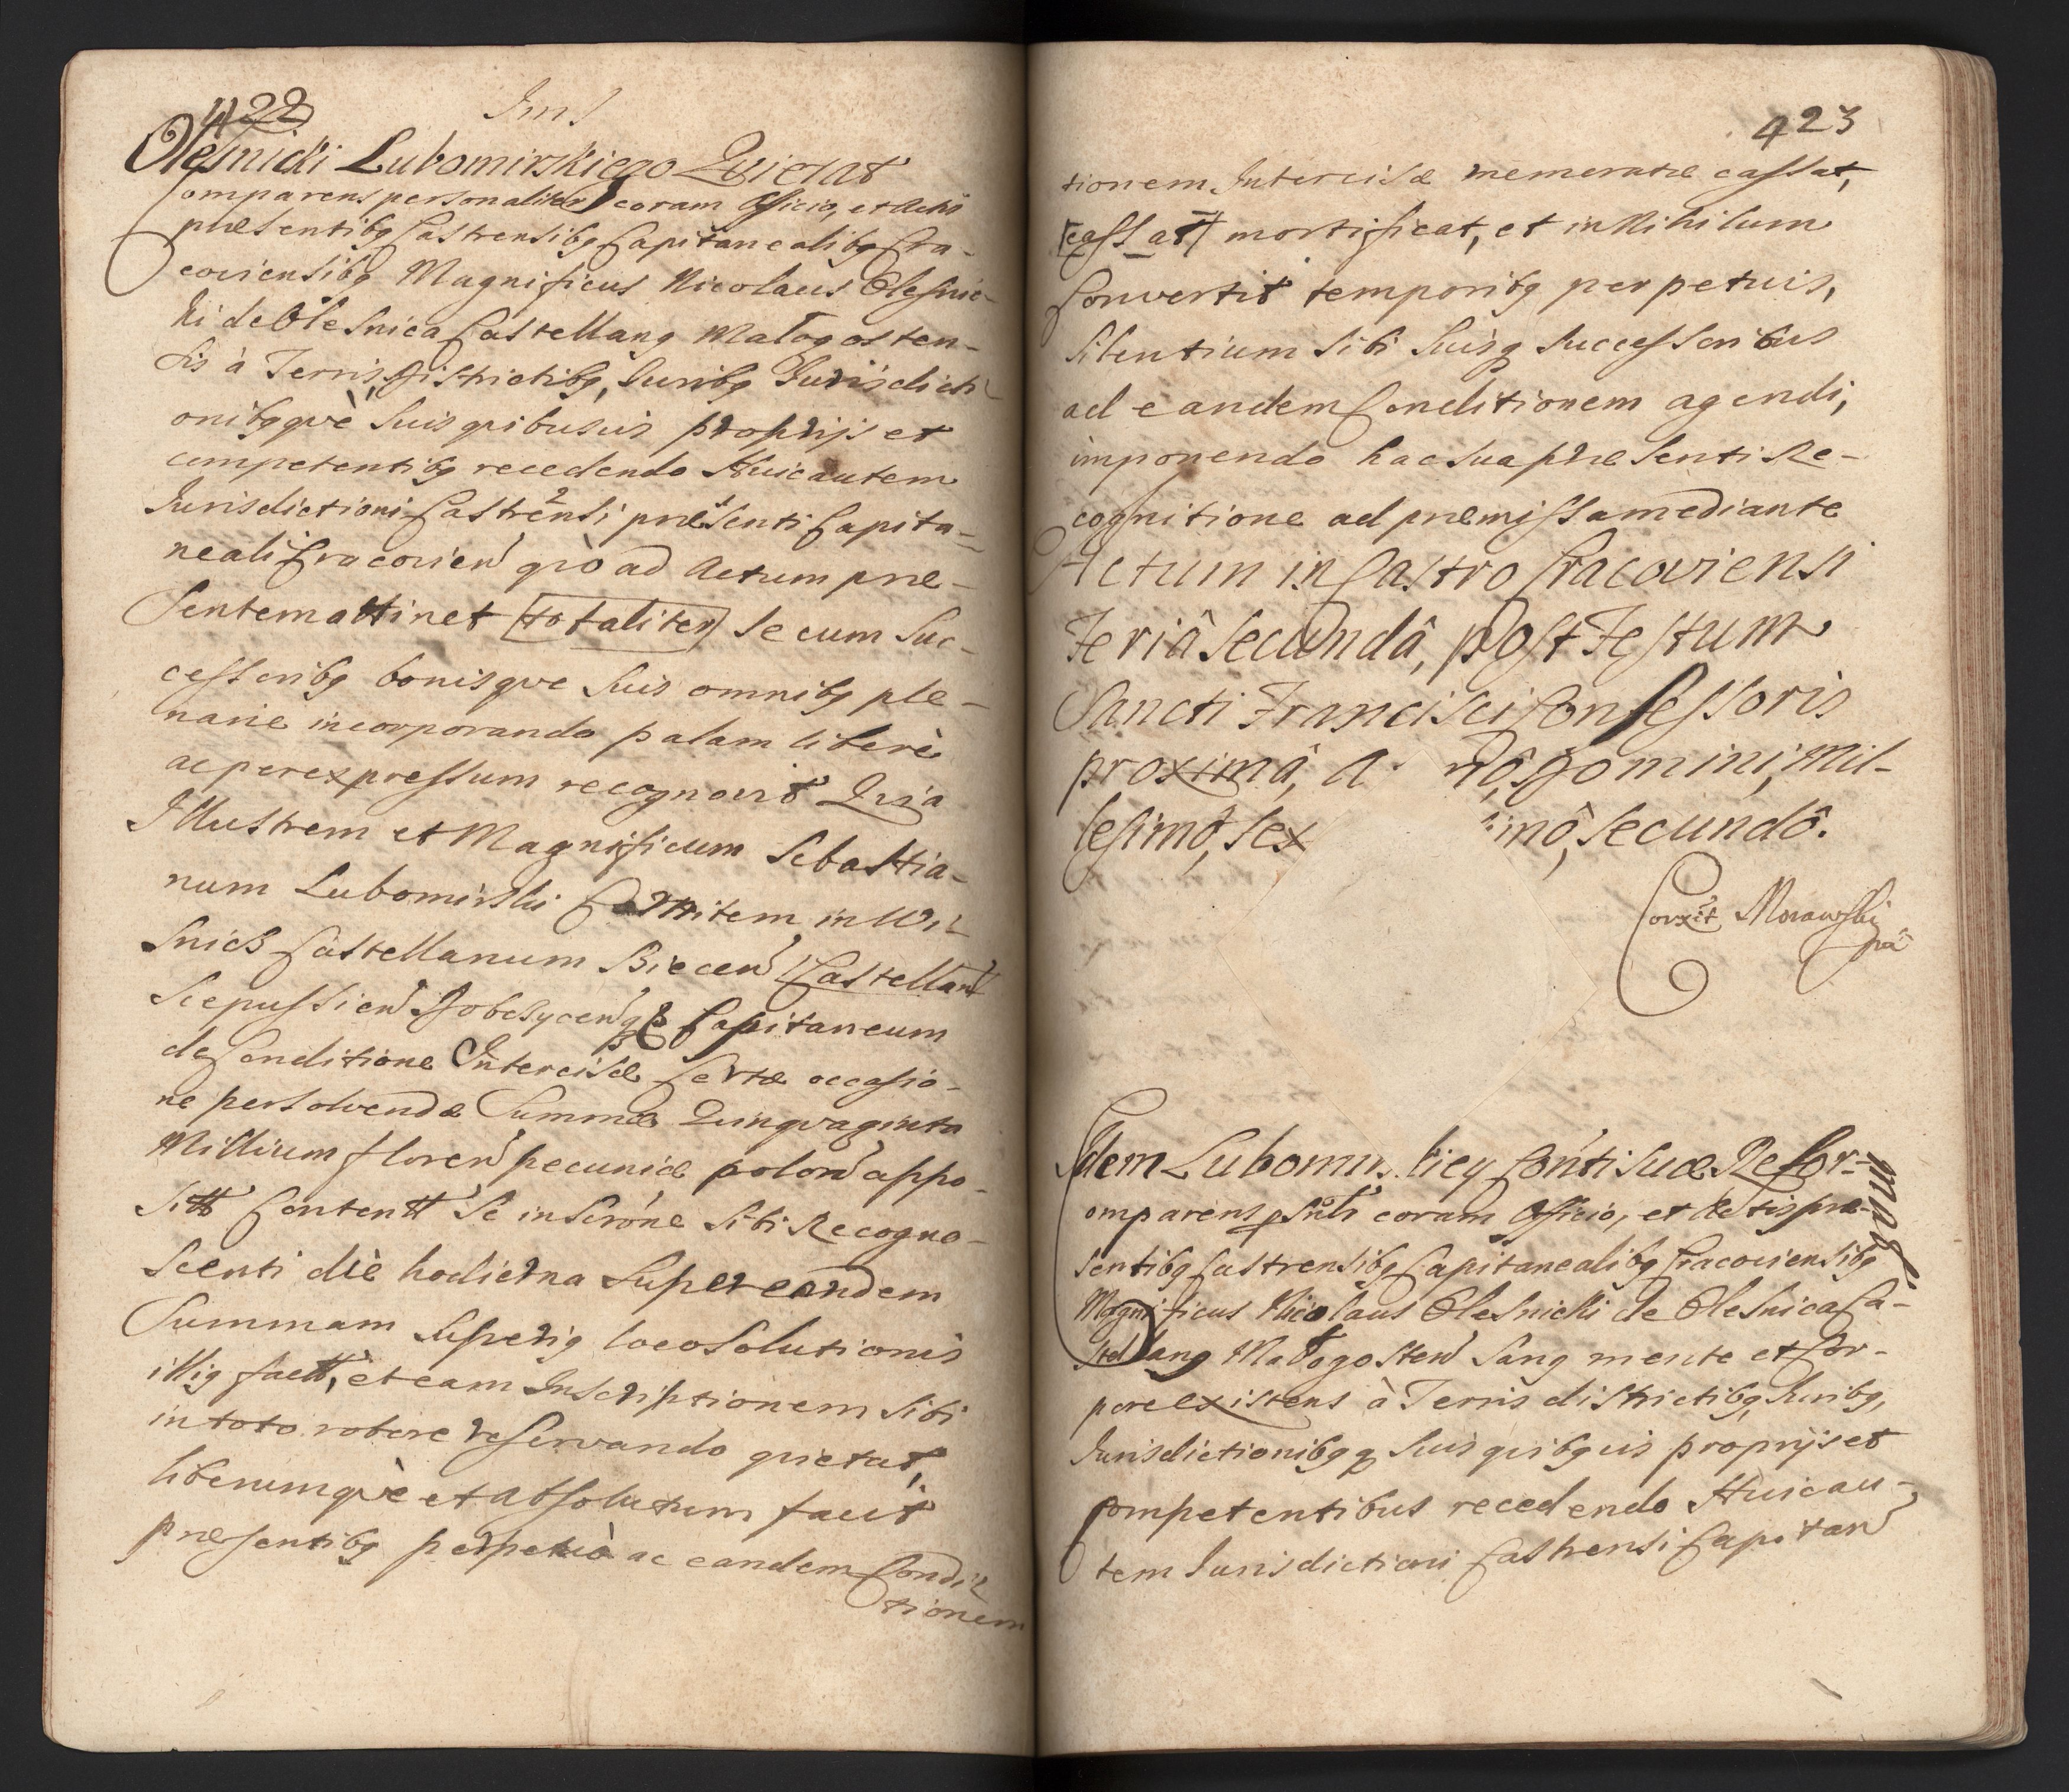 422
Olesnicki Lubomirskiego Qvietat
Comparens personaliter coram Officio, et Actis
præsentibq Castrensibq Capitanealibq Cra-
coviensibq Magnificus Nicolaus Olesnic-
ki de Olesnica Castellanq Małogosten-
sis à Terris, Districtibq, Iuribq Iurisdicti-
onibqqvè suis qvibusvis proprijs et
competentibq recedendo Huic autem
Iurisdictioni Castrensi præsenti Capita-
neali Cracovien qvò ad Actum præ-
sentem attinet totaliter se cum suc-
cessoribq bonisqve suis omnibq ple-
narie incorporando palam liberè
ac per expressum recognovit Qvia
Illustrem et Magnificum Sebastia-
num Lubomirski Comitem in Wi-
snicz Castellanum Biecen Castellan
Scepussien Dobczycenq & Capitaneum
de Conditione Intercisæ certæ occasio-
ne persolvendæ Summæ Qvinqvaginta
Millium floren pecuniæ polon appo-
sitt Contentt Se inscrõne sibi Recogno-
scenti diè hodierna super eandem
Summam superiq loco solutionis
illiq factt, et eam Inscriptionem sibi
in toto robore reservando qvietat,
liberumqvè et absolutum facit
præsentibq perpetuò ac eandem Condi-
tionem
423
tionem Intercisæ memoratæ cassat,
cassat mortificat, et in Nihilum
Convertit temporibq perpetuis,
silentium sibi suisq successoribus
ad eandem Conditionem agendi,
imponendo hac sua præsenti Re-
cognitione ad præmissa mediante
Actum in Castro Cracoviensi
Feriâ secundâ, post Festum
Sancti Francisci Confessoris
proximâ, A nô, Domini, Mil-
lesimô, sex imô, secundô.
Corxit Morawski
Idem Lubomir kiey Conti suæ Refor-
mat.
Comparens psnlr coram Officio, et Actis præ-
sentibq Castrensibq Capitanealibq Cracoviensibq
Magnificus Nicolaus Olesnicki de Olesnica Ca-
stellanq Małogosten sanq mente et Cor-
pore existens à Terris districtibq, Iuribq,
Iurisdictionibqq suis qvibqvis proprijs et
Competentibus recedendo Huic au-
tem Iurisdictioni Castrensi Capitan